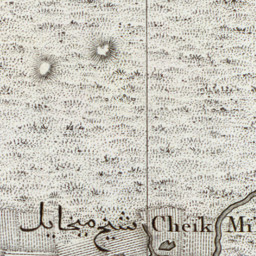 شيخ ميخايل Cheik Mi